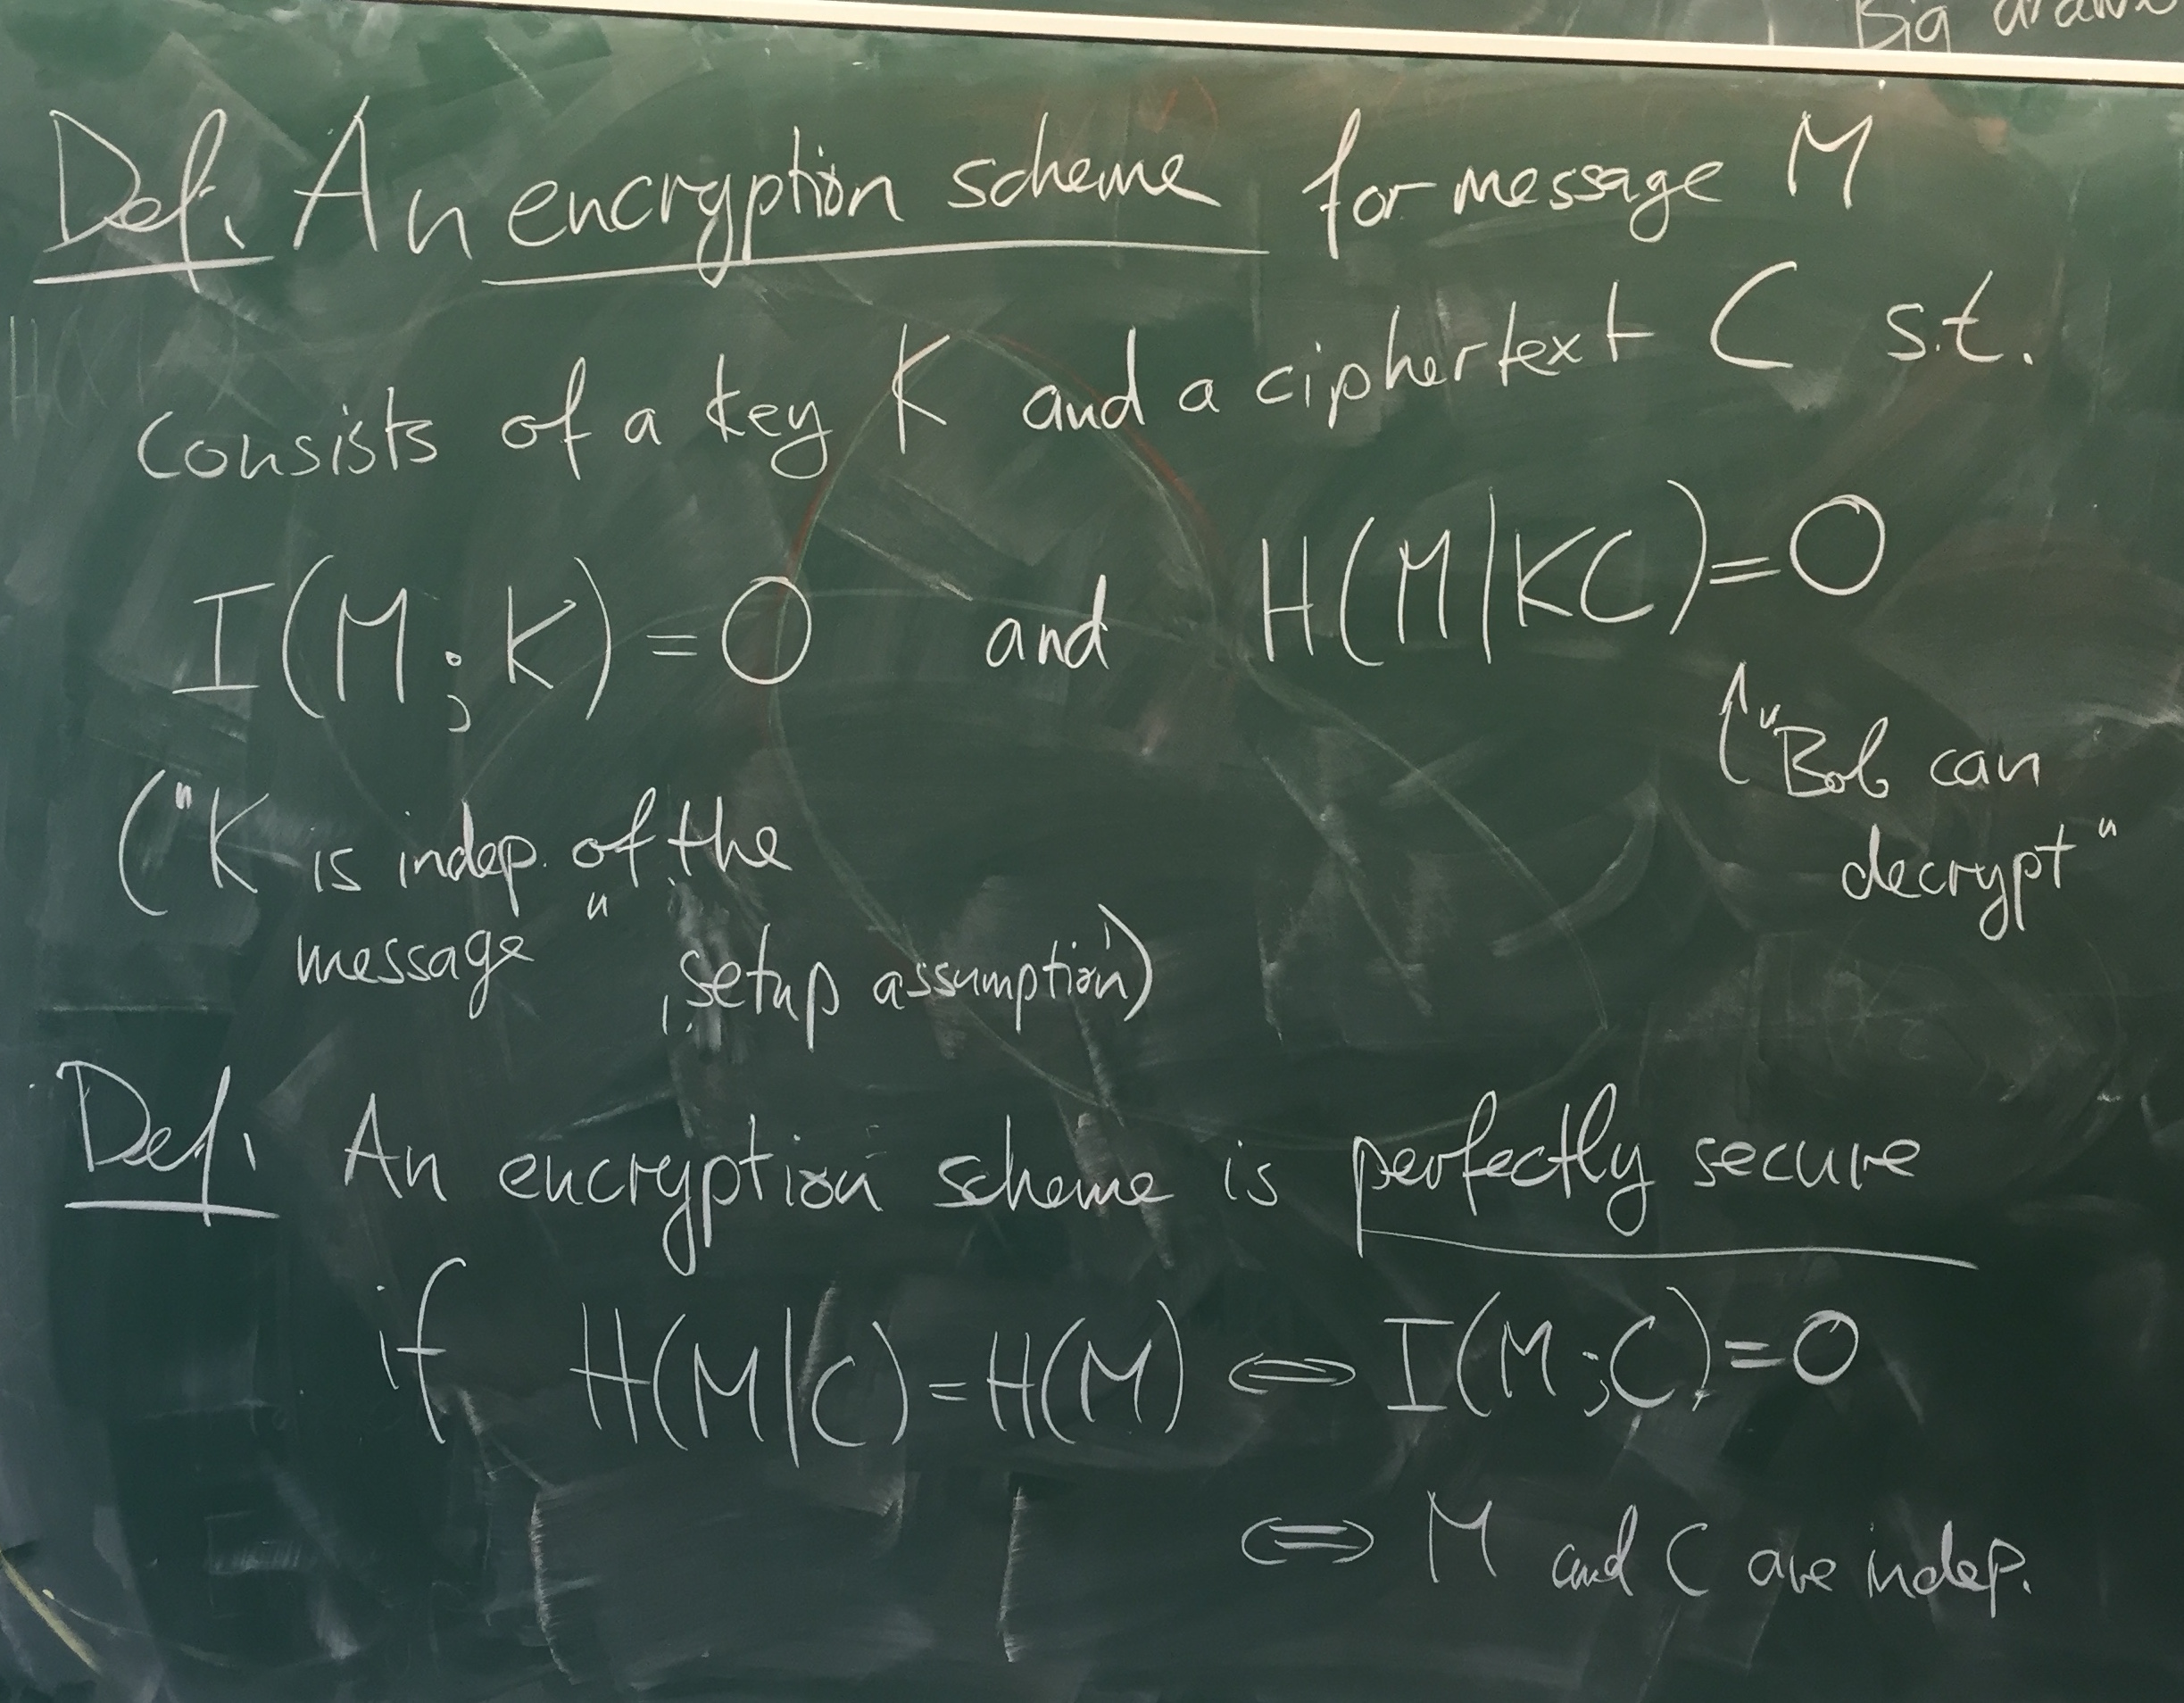 Big
Def. An encryption scheme for message M
consists of a key K and a ciphertext C s.t.
I(M;K)=0 and H(M|KC)=0
("K is indep. of the
message", setup assumption)
↑"Bob can
decrypt"
Def. An encryption scheme is perfectly secure
if H(M|C)=H(M) ⇔ I(M;C)=0
⇔ M and C are indep.